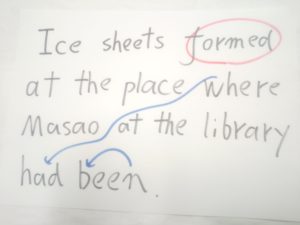 Ice sheets formed
at the place where
Masao at the library
had been.